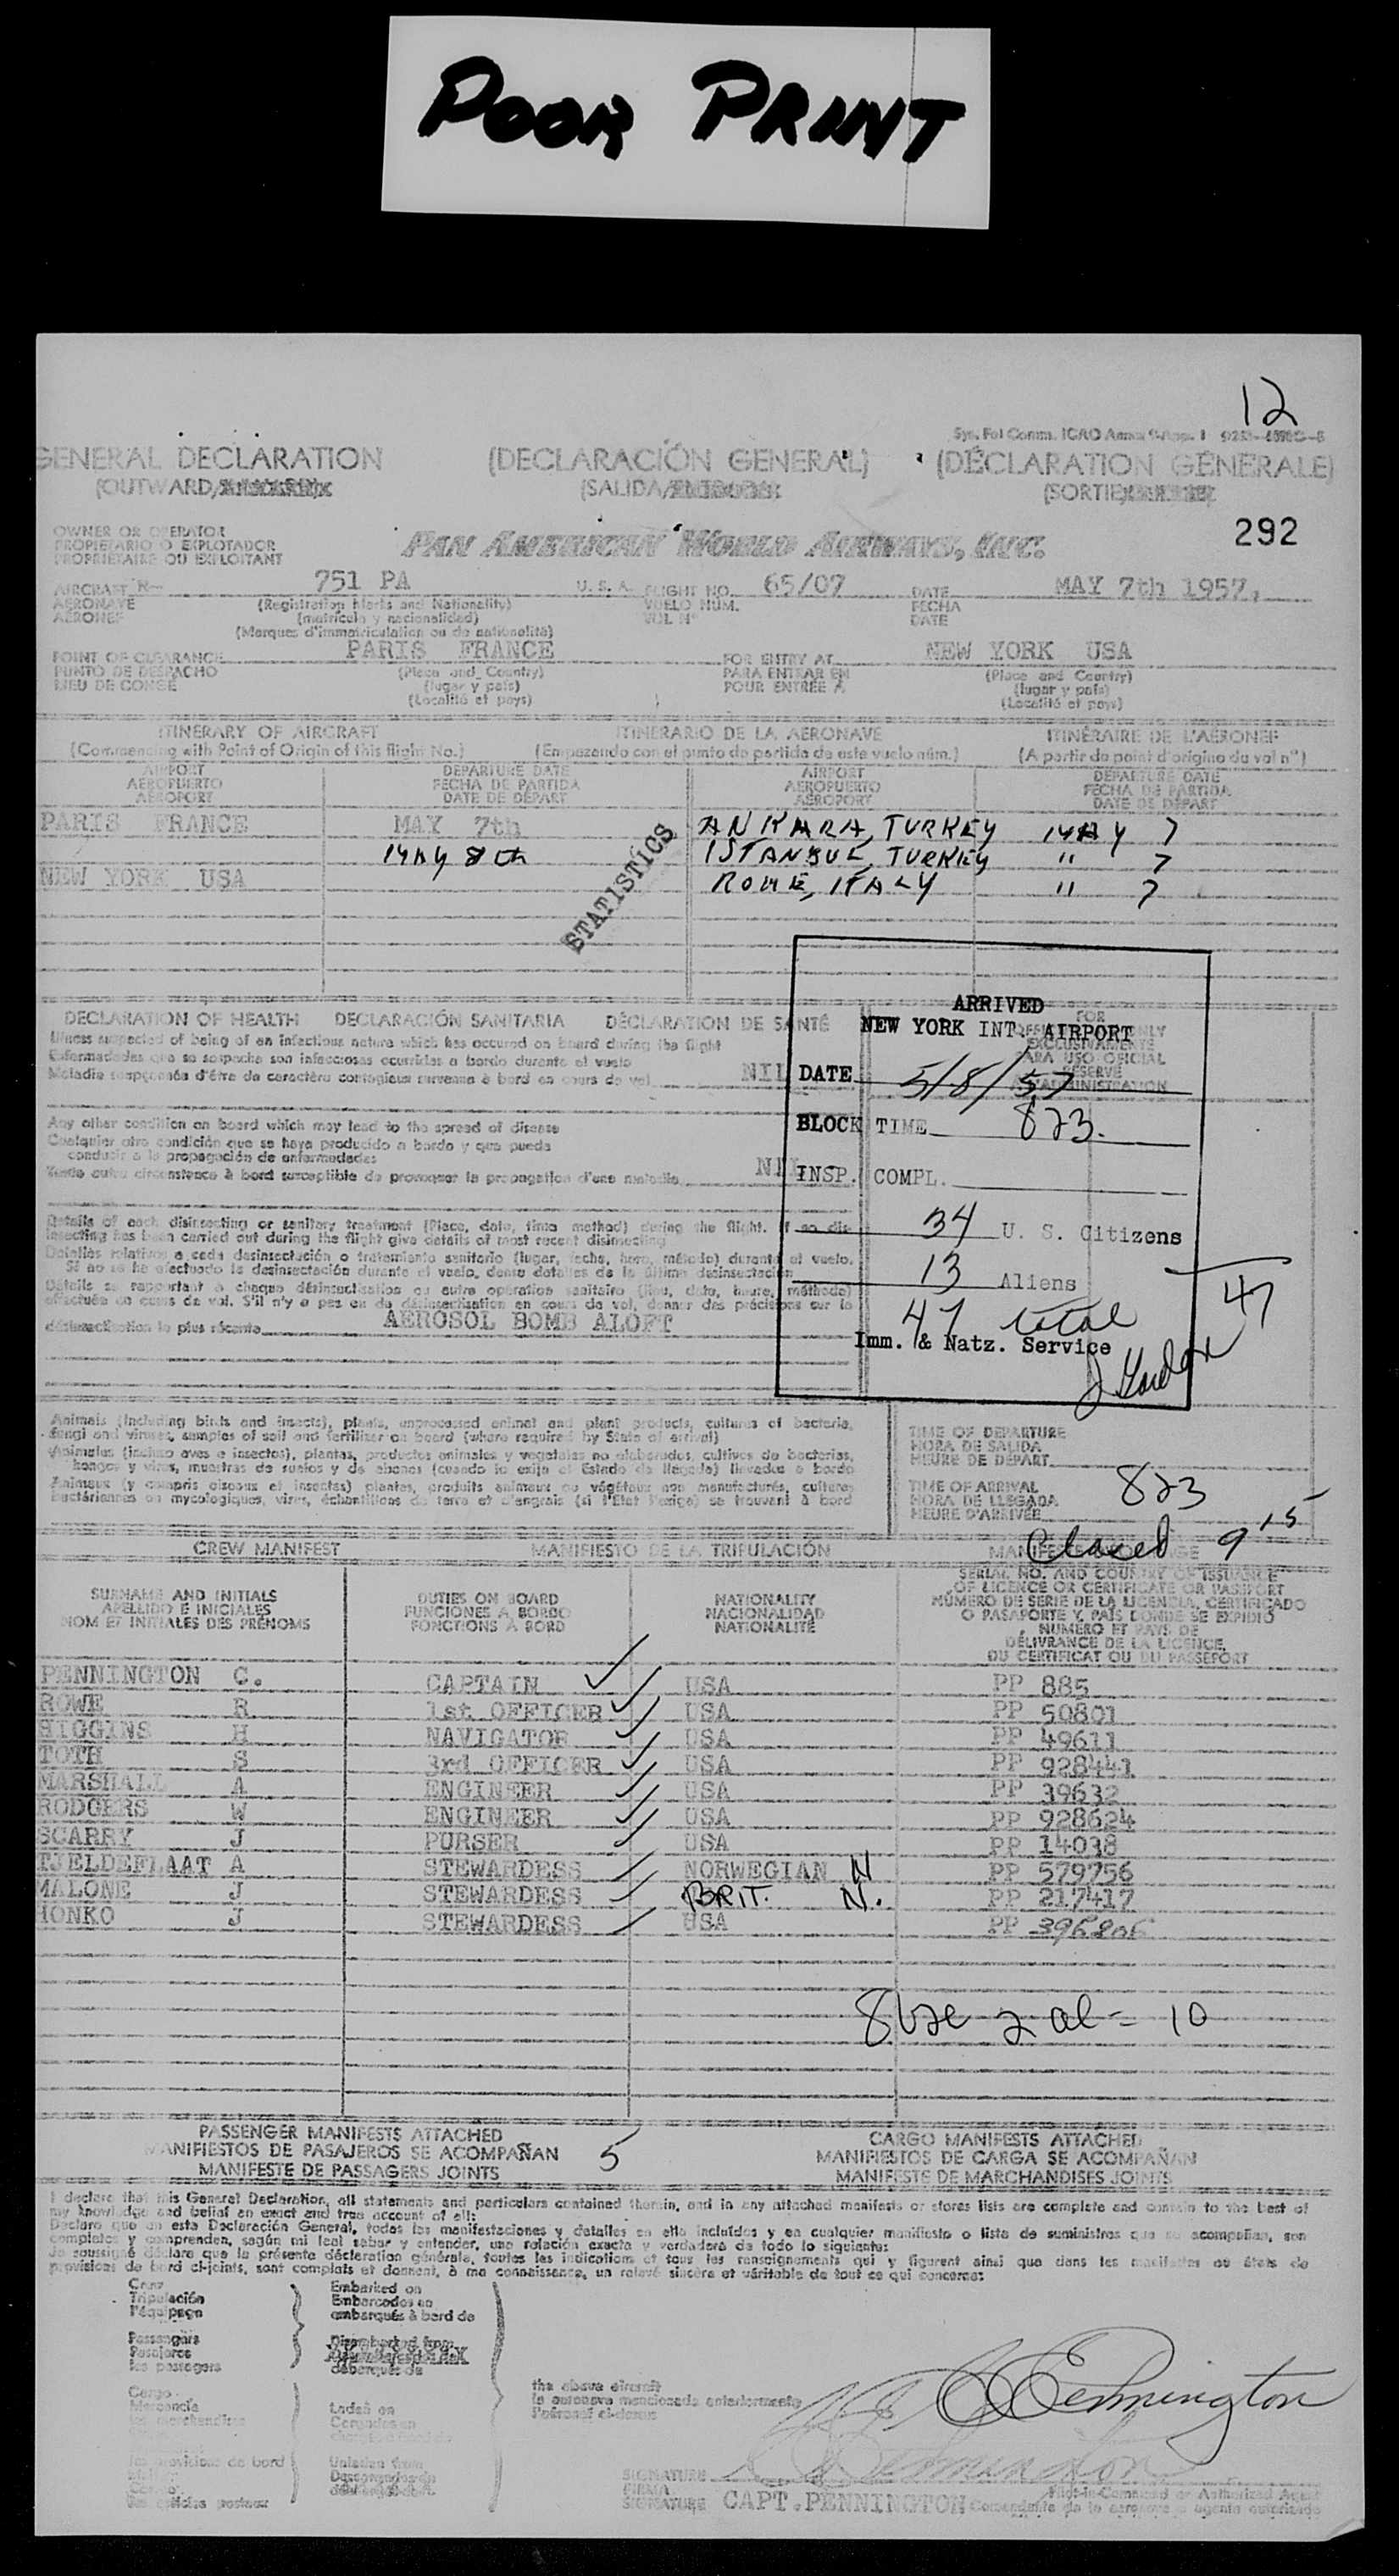 POOR PRINT
12
GENERAL DECLARATION (DECLARACIÓN GENERAL) (DÉCLARATION GÉNÉRALE)
(OUTWARD/ (SALIDA/ (SORTIE/
292
OWNER OR OPERATOR
PROPIETARIO O EXPLOTADOR
PROPRIETAIRE OU EXPLOITANT
PAN AMERICAN WORLD AIRWAYS, INC.
AIRCRAFT N— 751 PA U. S. A. FLIGHT NO. 65/07 DATE MAY 7th 1957,
AERONAVE (Registration Marks and Nationality) VUELO NÚM. FECHA
AÉRONEF (matrícula y nacionalidad) VOL Nº DATE
(Marques d'immatriculation ou de nationalité)
POINT OF CLEARANCE PARIS FRANCE FOR ENTRY AT NEW YORK USA
PUNTO DE DESPACHO (Place and Country) PARA ENTRAR EN (Place and Country)
LIEU DE CONGÉ (lugar y país) POUR ENTRÉE À (lugar y país)
(Localité et pays) (Localité et pays)
ITINERARY OF AIRCRAFT ITINERARIO DE LA AERONAVE ITINÉRAIRE DE L'AÉRONEF
(Commencing with Point of Origin of this flight No.) (Empezando con el punto de partida de este vuelo núm.) (A partir du point d'origine du vol nº)
AIRPORT DEPARTURE DATE AIRPORT DEPARTURE DATE
AEROPUERTO FECHA DE PARTIDA AEROPUERTO FECHA DE PARTIDA
AÉROPORT DATE DE DÉPART AÉROPORT DATE DE DÉPART
PARIS FRANCE MAY 7th ANKARA, TURKEY MAY 7
MAY 8th ISTANBUL, TURKEY " 7
NEW YORK USA ROME, ITALY " 7
STATISTICS
ARRIVED
NEW YORK INT. AIRPORT
DATE 5/8/57
BLOCK TIME 823.
INSP. COMPL.
34 U. S. Citizens
13 Aliens
47 total
Imm. & Natz. Service
47
DECLARATION OF HEALTH DECLARACIÓN SANITARIA DÉCLARATION DE SANTÉ
Illness suspected of being of an infectious nature which has occured on board during the flight
Enfermedades que se sospecha son infecciosas ocurridas a bordo durante el vuelo
Maladie soupçonnée d'être de caractère contagieux survenue à bord en cours de vol NIL
Any other condition on board which may lead to the spread of disease
Cualquier otra condición que se haya producido a bordo y que pueda
conducir a la propagación de enfermedades
Toute autre circonstance à bord susceptible de provoquer la propagation d'une maladie NIL
Details of each disinsecting or sanitary treatment (Place, date, time method) during the flight. If no dis-
insecting has been carried out during the flight give details of most recent disinsecting
Detalles relativos a cada desinsectación o tratamiento sanitario (lugar, fecha, hora, método) durante el vuelo.
Si no se ha efectuado la desinsectación durante el vuelo, dense detalles de la última desinsectación
Détails se rapportant à chaque désinsectisation ou autre opération sanitaire (lieu, date, heure, méthode)
effectuée en cours de vol. S'il n'y a pas eu de désinsectisation en cours de vol, donner des précisions sur la
désinsectisation la plus récente AEROSOL BOMB ALOFT
Animals (including birds and insects), plants, unprocessed animal and plant products, cultures of bacteria,
fungi and viruses, samples of soil and fertilizer on board (where required by State of arrival)
Animales (incluso aves e insectos), plantas, productos animales y vegetales no elaborados, cultivos de bacterias,
hongos y virus, muestras de suelos y de abonos (cuando lo exija el Estado de llegada) llevados a bordo
Animaux (y compris oiseaux et insectes) plantes, produits animaux ou végétaux non manufacturés, cultures
bactériennes ou mycologiques, virus, échantillons de terre et d'engrais (si l'État l'exige) se trouvant à bord
TIME OF DEPARTURE
HORA DE SALIDA
HEURE DE DÉPART
TIME OF ARRIVAL
HORA DE LLEGADA
HEURE D'ARRIVÉE 823
Closed 9 15
CREW MANIFEST MANIFIESTO DE LA TRIPULACIÓN
SURNAME AND INITIALS DUTIES ON BOARD NATIONALITY SERIAL NO. AND COUNTRY OF ISSUANCE
APELLIDO E INICIALES FUNCIONES A BORDO NACIONALIDAD OF LICENCE OR CERTIFICATE OR PASSPORT
NOM ET INITIALES DES PRÉNOMS FONCTIONS À BORD NATIONALITÉ NÚMERO DE SERIE DE LA LICENCIA, CERTIFICADO
O PASAPORTE Y PAÍS DONDE SE EXPIDIÓ
NUMÉRO ET PAYS DE
DÉLIVRANCE DE LA LICENCE,
DU CERTIFICAT OU DU PASSEPORT
PENNINGTON C. CAPTAIN USA PP 885
ROWE R 1st OFFICER USA PP 50801
HIGGINS H NAVIGATOR USA PP 49611
TOTH S 3rd OFFICER USA PP 928441
MARSHALL A ENGINEER USA PP 39632
RODGERS W ENGINEER USA PP 928624
SCARRY J PURSER USA PP 14038
TJELDEFLAAT A STEWARDESS NORWEGIAN N PP 579756
MALONE J STEWARDESS BRIT. N. PP 217417
HONKO J STEWARDESS USA PP
= 10
PASSENGER MANIFESTS ATTACHED CARGO MANIFESTS ATTACHED
MANIFIESTOS DE PASAJEROS SE ACOMPAÑAN 5 MANIFIESTOS DE CARGA SE ACOMPAÑAN
MANIFESTE DE PASSAGERS JOINTS MANIFESTE DE MARCHANDISES JOINTS
I declare that this General Declaration, all statements and particulars contained therein, and in any attached manifests or stores lists are complete and contain to the best of
my knowledge and belief an exact and true account of all:
Declaro que en esta Declaración General, todas las manifestaciones y detalles en ella incluidos y en cualquier manifiesto o lista de suministros que se acompañan, son
completos y comprenden, según mi leal saber y entender, una relación exacta y verdadera de todo lo siguiente:
Je soussigné déclare que la présente déclaration générale, toutes les indications et tous les renseignements qui y figurent ainsi que dans les manifestes ou états de
provisions de bord ci-joints, sont complets et donnent, à ma connaissance, un relevé sincère et véritable de tout ce qui concerne:
Crew Embarked on
Tripulación Embarcados en
l'équipage embarqués à bord de
Passengers Disembarked from
Pasajeros
les passagers débarqués de
Cargo
Mercancía Laded on
les marchandises Cargados en
the above aircraft
la aeronave mencionada anteriormente
l'aéronef ci-dessus
les provisions de bord Unladen from
Descargados en
Pennington
SIGNATURE
FIRMA
SIGNATURE CAPT. PENNINGTON
Pilot-in-Command or Authorized Agent
Comandante de la aeronave o agente autorizado